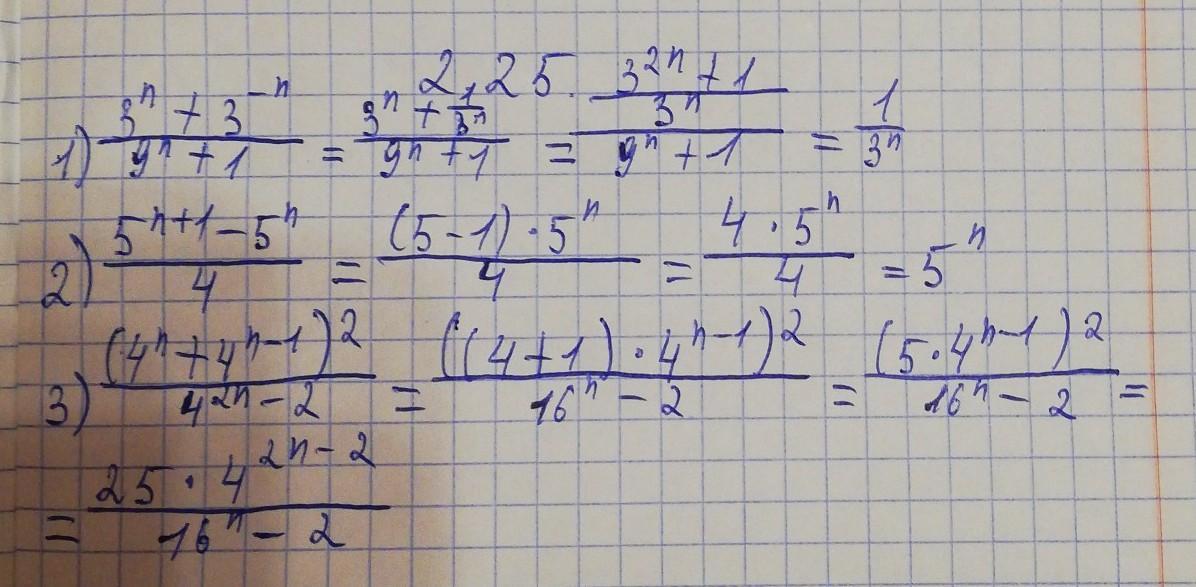 2.25.
1) (3^n + 3^{-n})/(9^n + 1) = (3^n + 1/3^n)/(9^n + 1) = ((3^{2n} + 1)/3^n)/(9^n + 1) = 1/3^n
2) (5^{n+1} - 5^n)/4 = ((5 - 1) · 5^n)/4 = (4 · 5^n)/4 = 5^n
3) (4^n + 4^{n-1})^2/(4^{2n} - 2) = ((4 + 1) · 4^{n-1})^2/(16^n - 2) = (5 · 4^{n-1})^2/(16^n - 2) =
= (25 · 4^{2n-2})/(16^n - 2)